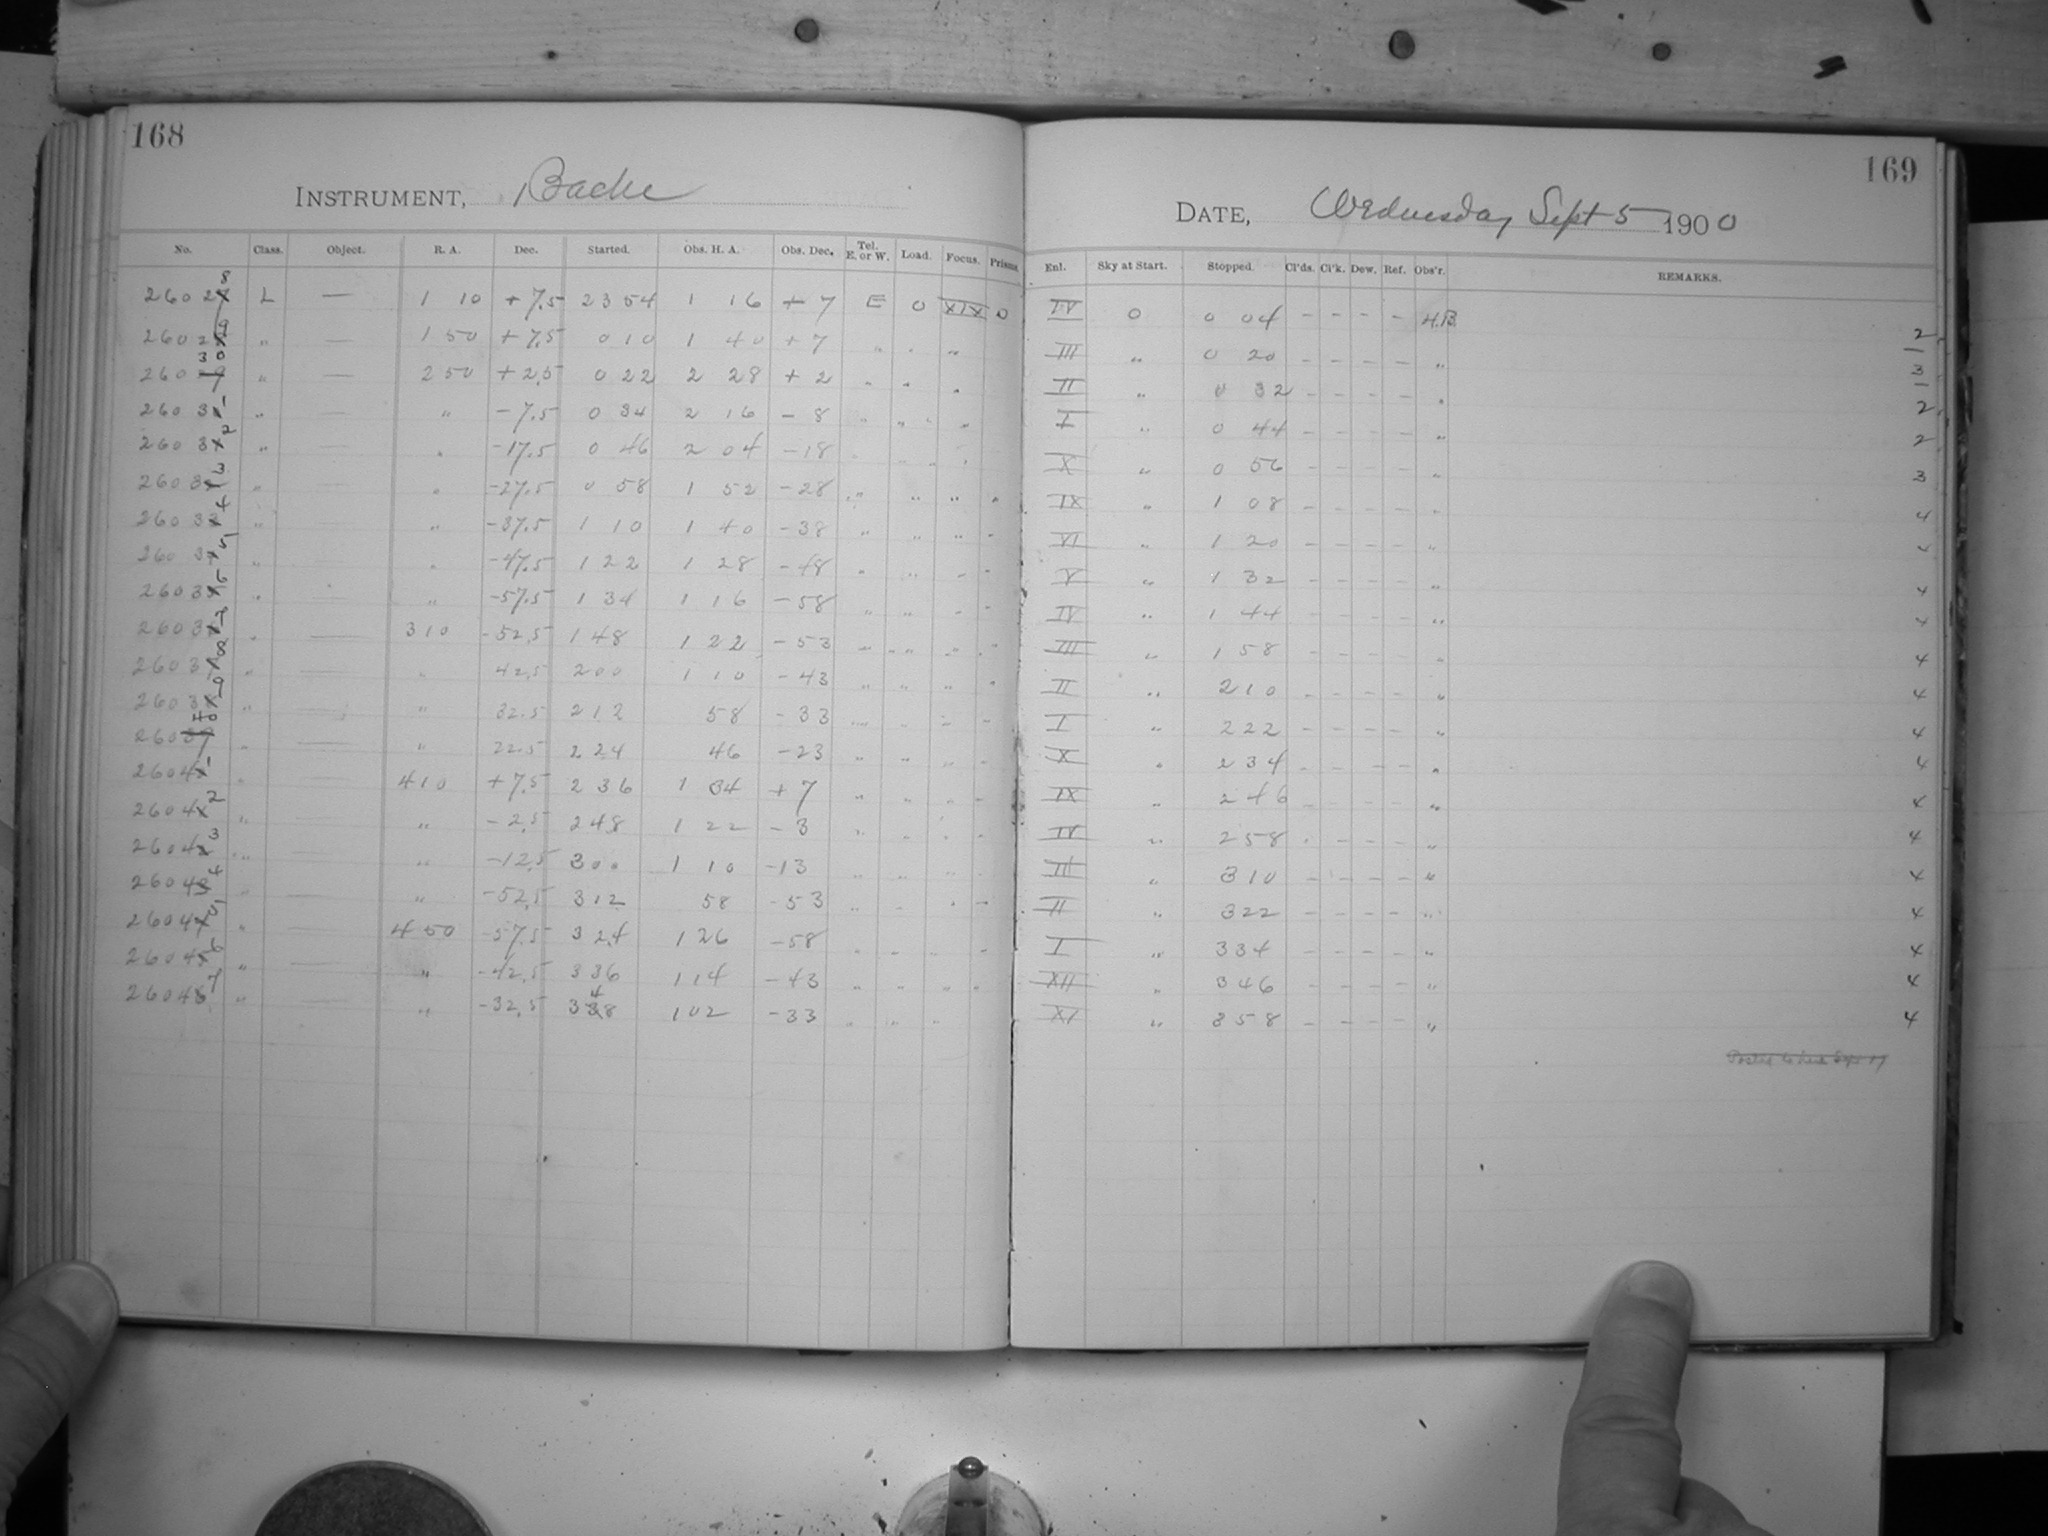 168
INSTRUMENT, Bache
No. Class. Object. R. A. Dec. Started. Obs. H. A. Obs. Dec. Tel. E. or W. Load. Focus. Prisms.
26028 L — 1 10 +7.5 23 54 1 16 +7 E 0 XIX 0
2602 " — 1 50 +7.5 0 10 1 40 +7 " " "
26030 " — 2 50 +2.5 0 22 2 28 +2 " " "
26031 " — " -7.5 0 34 2 16 -8 " " "
26032 " — " -17.5 0 46 2 04 -18
26033 " — " -27.5 0 58 1 52 -28 " " " "
26034 " — " -37.5 1 10 1 40 -38 " " " "
26035 " — " -47.5 1 22 1 28 -48 " " " "
2603 " — " -57.5 1 34 1 16 -58 " " " "
2603 " — 3 10 -52.5 1 48 1 22 -53 " " " "
26038 " — " 42.5 2 00 1 10 -43 " " " "
2603 " — " 32.5 2 12 58 -33 " " " "
260 " — " 22.5 2 24 46 -23 " " " "
26041 " — 4 10 +7.5 2 36 1 34 +7 " " " "
26042 " — " -2.5 2 48 1 22 -3 " " " "
26043 " — " -12.5 3 00 1 10 -13 " " " "
26044 " — " -52.5 3 12 58 -53 " " " "
26045 " — 4 50 -57.5 3 24 1 26 -58 " " " "
26046 " — " -42.5 3 36 1 14 -43 " " " "
26047 " — " -32.5 3 48 1 02 -33 " " "
169
DATE, Wednesday Sept 5 1900
Enl. Sky at Start. Stopped. Cl'ds. Cl'k. Dew. Ref. Obs'r. REMARKS.
IV 0 0 04 - - - - H.B. 2
III " 0 20 - - - - " 3
II " 0 32 - - - - " 2
I " 0 44 - - - - " 2
X " 0 56 - - - - " 3
IX " 1 08 - - - - " 4
VI " 1 20 - - - - " 4
V " 1 32 - - - - " 4
IV " 1 44 - - - - " 4
III " 1 58 - - - - " 4
II " 2 10 - - - - " 4
I " 2 22 - - - - " 4
X " 2 34 - - - - " 4
IX " 2 46 - - - - " 4
IV " 2 58 - - - - " 4
III " 3 10 - - - - " 4
II " 3 22 - - - - " 4
I " 3 34 - - - - " 4
XII " 3 46 - - - - " 4
XI " 3 58 - - - - " 4
Posted to here Sept 17